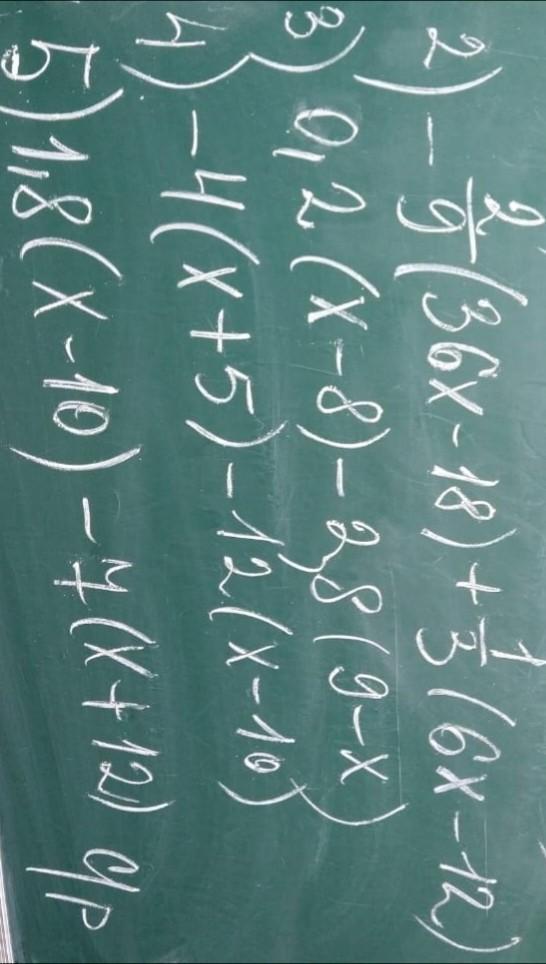 2) - 2/9 (36x - 18) + 1/3 (6x - 12)
3) 0,2 (x - 8) - 2,8 (9 - x)
4) - 4 (x + 5) - 12 (x - 10)
5) 1,8 (x - 10) - 7 (x + 12)